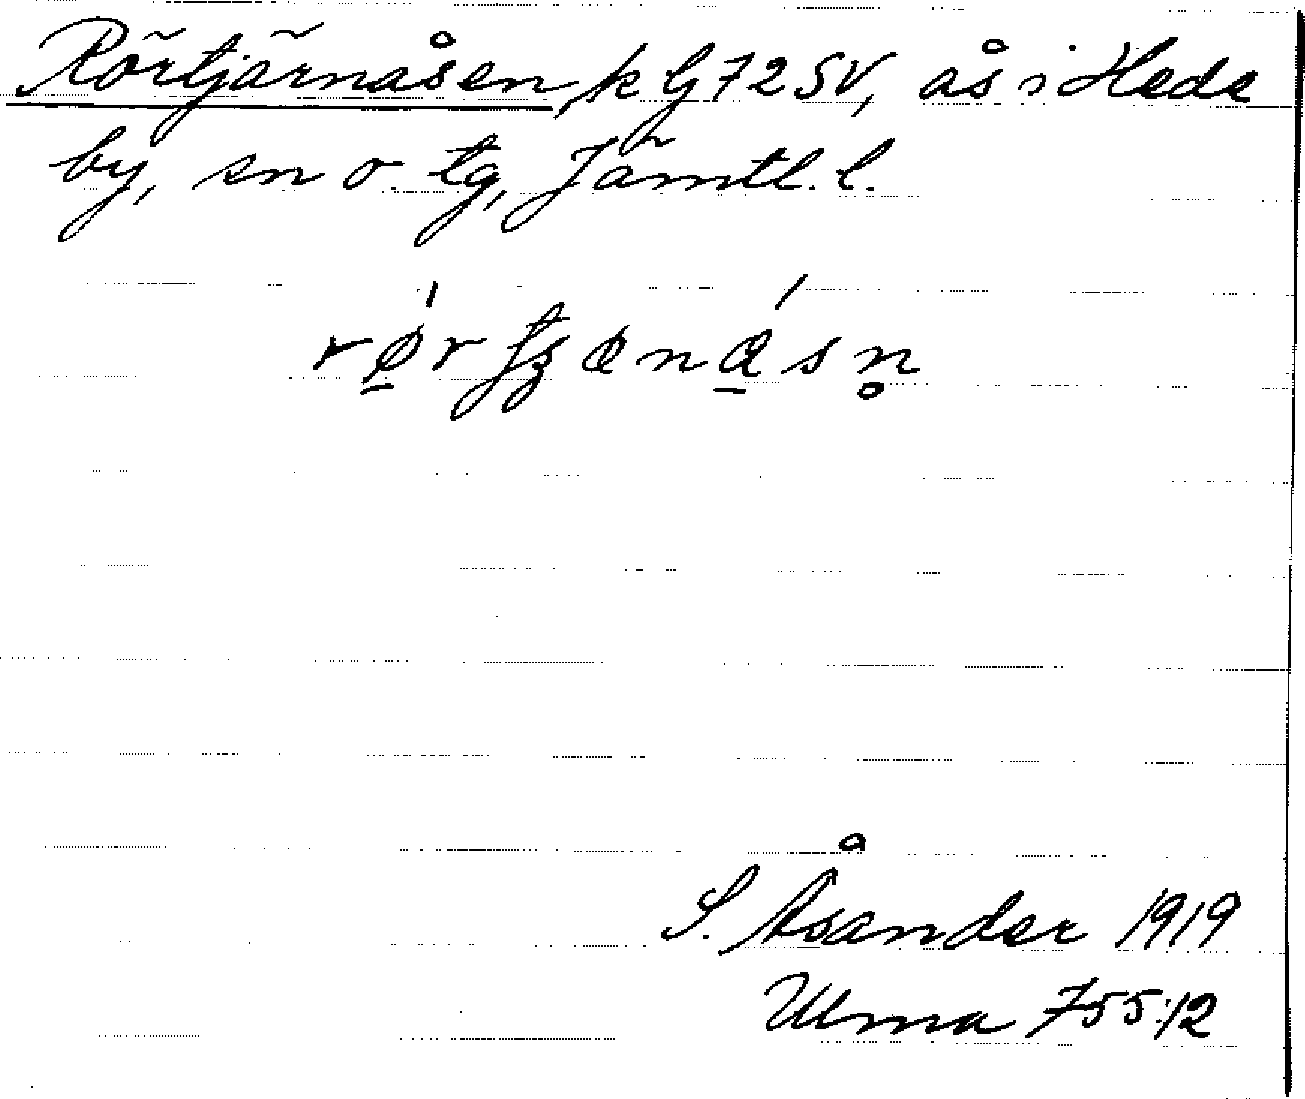 Rörtjärnåsen, k G72SV, ås i Hede
by, sn o. tg, Jämtl. l.
S. Åsander 1919
Ulma 755:12